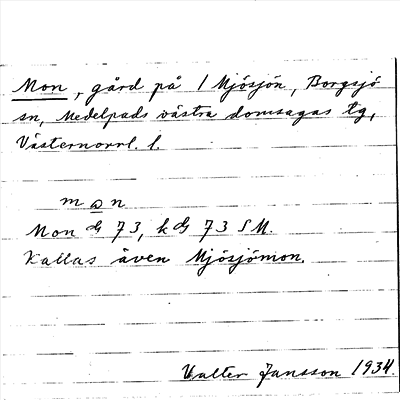 Mon, gård på 1 Mjösjön, Borgsjö
sn, Medelpads västra domsagas tg,
Västernorrl. l.
mωn
Mon G 73, kG 73 SM.
Kallas även Mjösjömon.
Valter Jansson 1934.